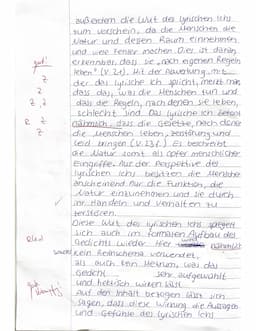 außerdem die Wut des lyrischen Ichs
zum vorschein, da die Menschen die
Natur und dessen Raum einnehmen
und viele Fehler machen. Dies ist daran
erkennbar, dass sie „nach eigenen Regeln
leben“ (V. 21). Mit der Bewertung, mit
der das lyrische Ich spricht, merkt man,
dass das, was die Menschen tun und
dass die Regeln, nach denen sie leben,
schlecht sind. Das lyrische Ich betont
nähmlich, dass die Gesetze, nach denen
die Menschen leben, Zerstörung und
Leid bringen (V. 23 f.). Es beschreibt
die Natur somit als Opfer menschlicher
Eingriffe. Aus der Perspektive des
lyrischen Ichs besitzen die Menschen
anscheinend nur die Funktion, die
Natur einzunehmen und sie durch
ihr Handeln und Verhalten zu
zerstören.
Diese Wut des lyrischen Ichs spiegelt
sich auch im formalen Aufbau des
Gedichts wieder. Hier wurde nähmlich
kein Reimschema verwendet,
als auch kein Metrum, was das
Gedicht sehr aufgewühlt
und hektisch wirken lässt.
Auf den Inhalt bezogen lässt sich
sagen, dass diese Wirkung die Aussagen
und Gefühle des lyrischen Ichs
gut!
Z
Z
Z, Z
R Z
Z